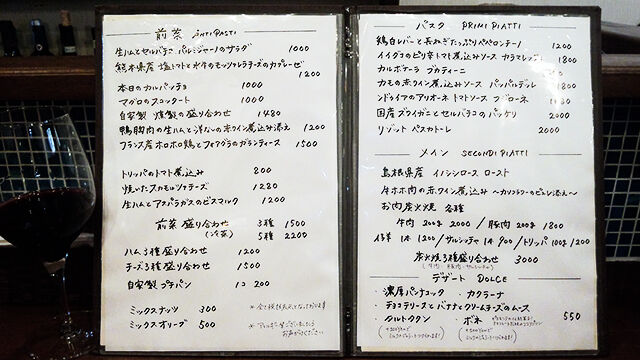 前菜 ANTIPASTI
生ハムとセルバチコ パルミジャーノのサラダ 1000
熊本県産 塩トマトと水牛のモッツァレラチーズのカプレーゼ
1200
本日のカルパッチョ 1000
マグロのスコッタート 1000
自家製 燻製の盛り合わせ 1480
鴨胸肉の生ハムと洋なしの赤ワイン煮込み添え 1200
フランス産ホロホロ鶏とフォアグラのガランティーヌ 1500
トリッパのトマト煮込み 800
焼いたスカモルツァチーズ 1280
生ハムとアスパラガスのビスマルク 1200
前菜 盛り合わせ 3種 1500
(冷菜) 5種 2200
ハム3種盛り合わせ 1200
チーズ3種盛り合わせ 1500
自家製 プチパン 1コ 200
ミックスナッツ 300
ミックスオリーブ 500
パスタ PRIMI PIATTI
鶏白レバーと長ねぎたっぷりペペロンチーノ 1200
イイダコのピリ辛トマト煮込みソース カラマレッティ 1800
カルボナーラ ブカティーニ
カモの赤ワイン煮込みソース パッパルデッレ 1800
ンドゥイアのアリオーネ トマトソース 1800
国産ブライガニとセルバチコのパッケリ 2000
リゾット ペスカトーレ 2000
メイン SECONDI PIATTI
島根県産 イノシシロース ロースト
牛ホホ肉の赤ワイン煮込み 〜カリフラワーのピューレ添え〜
お肉炭火焼 各種
牛肉 200g 2000 / 豚肉 200g 1800
仔羊 1本 1200 / サルシッチャ 1本 900 / トリッパ 100g 1200
炭火焼3種盛り合わせ 3000
デザート DOLCE
・濃厚パンナコッタ ・カタラーナ
・チョコテリーヌとバナナとクリームチーズのムース
・タルトタタン ・ボネ 550